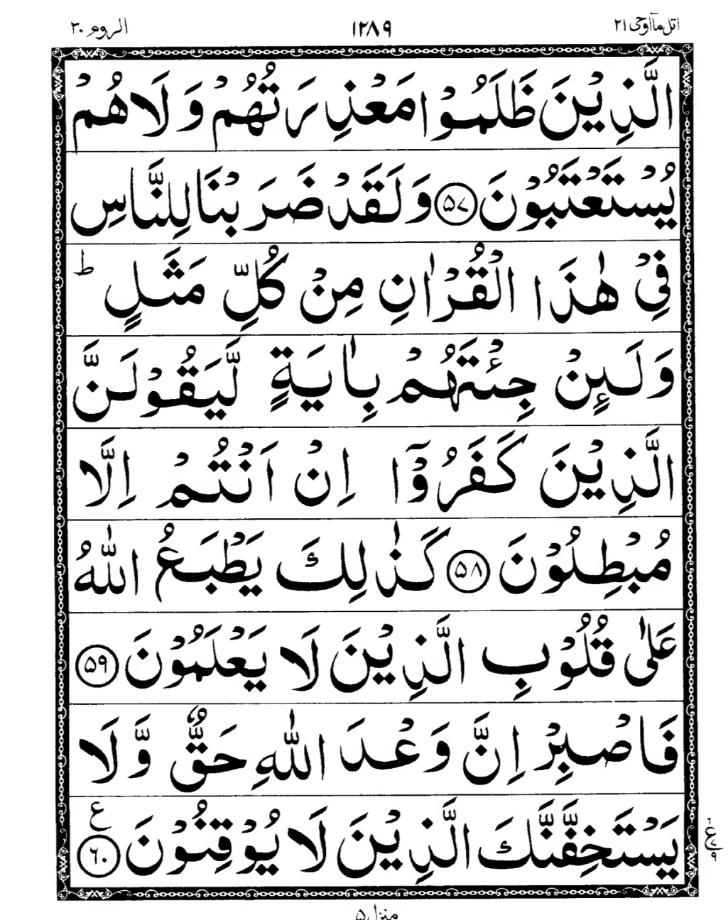 اتل ماآوحی ۲۱ ۱۲۸۹ الروم ۳۰
الَّذِيْنَ ظَلَمُوْا مَعْذِرَتُهُمْ وَلَا هُمْ
يُسْتَعْتَبُوْنَ ۵۷ وَلَقَدْ ضَرَبْنَا لِلنَّاسِ
فِيْ هٰذَا الْقُرْاٰنِ مِنْ كُلِّ مَثَلٍ ؕ
وَلَئِنْ جِئْتَهُمْ بِاٰيَةٍ لَّيَقُوْلَنَّ
الَّذِيْنَ كَفَرُوْٓا اِنْ اَنْتُمْ اِلَّا
مُبْطِلُوْنَ ۵۸ كَذٰلِكَ يَطْبَعُ اللّٰهُ
عَلٰى قُلُوْبِ الَّذِيْنَ لَا يَعْلَمُوْنَ ۵۹
فَاصْبِرْ اِنَّ وَعْدَ اللّٰهِ حَقٌّ وَّلَا
يَسْتَخِفَّنَّكَ الَّذِيْنَ لَا يُوْقِنُوْنَ ۶۰ ع
منزل ۵